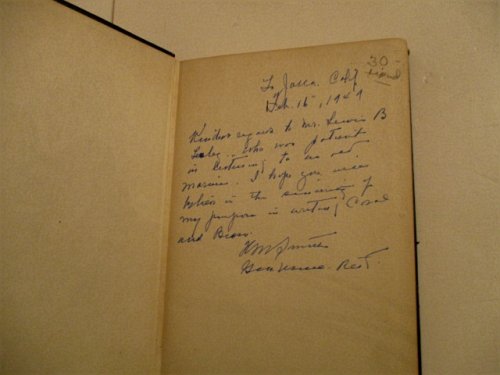 30-
signed
La Jolla, Calif
Feb. 15, 1949
Kindest regards to Mr. Lewis B
who was patient
in listening to an old
marine. I hope you will
believe in the sincerity of
my purpose in writing Coral
and Brass.
H M Smith
Gen Marine - Ret.